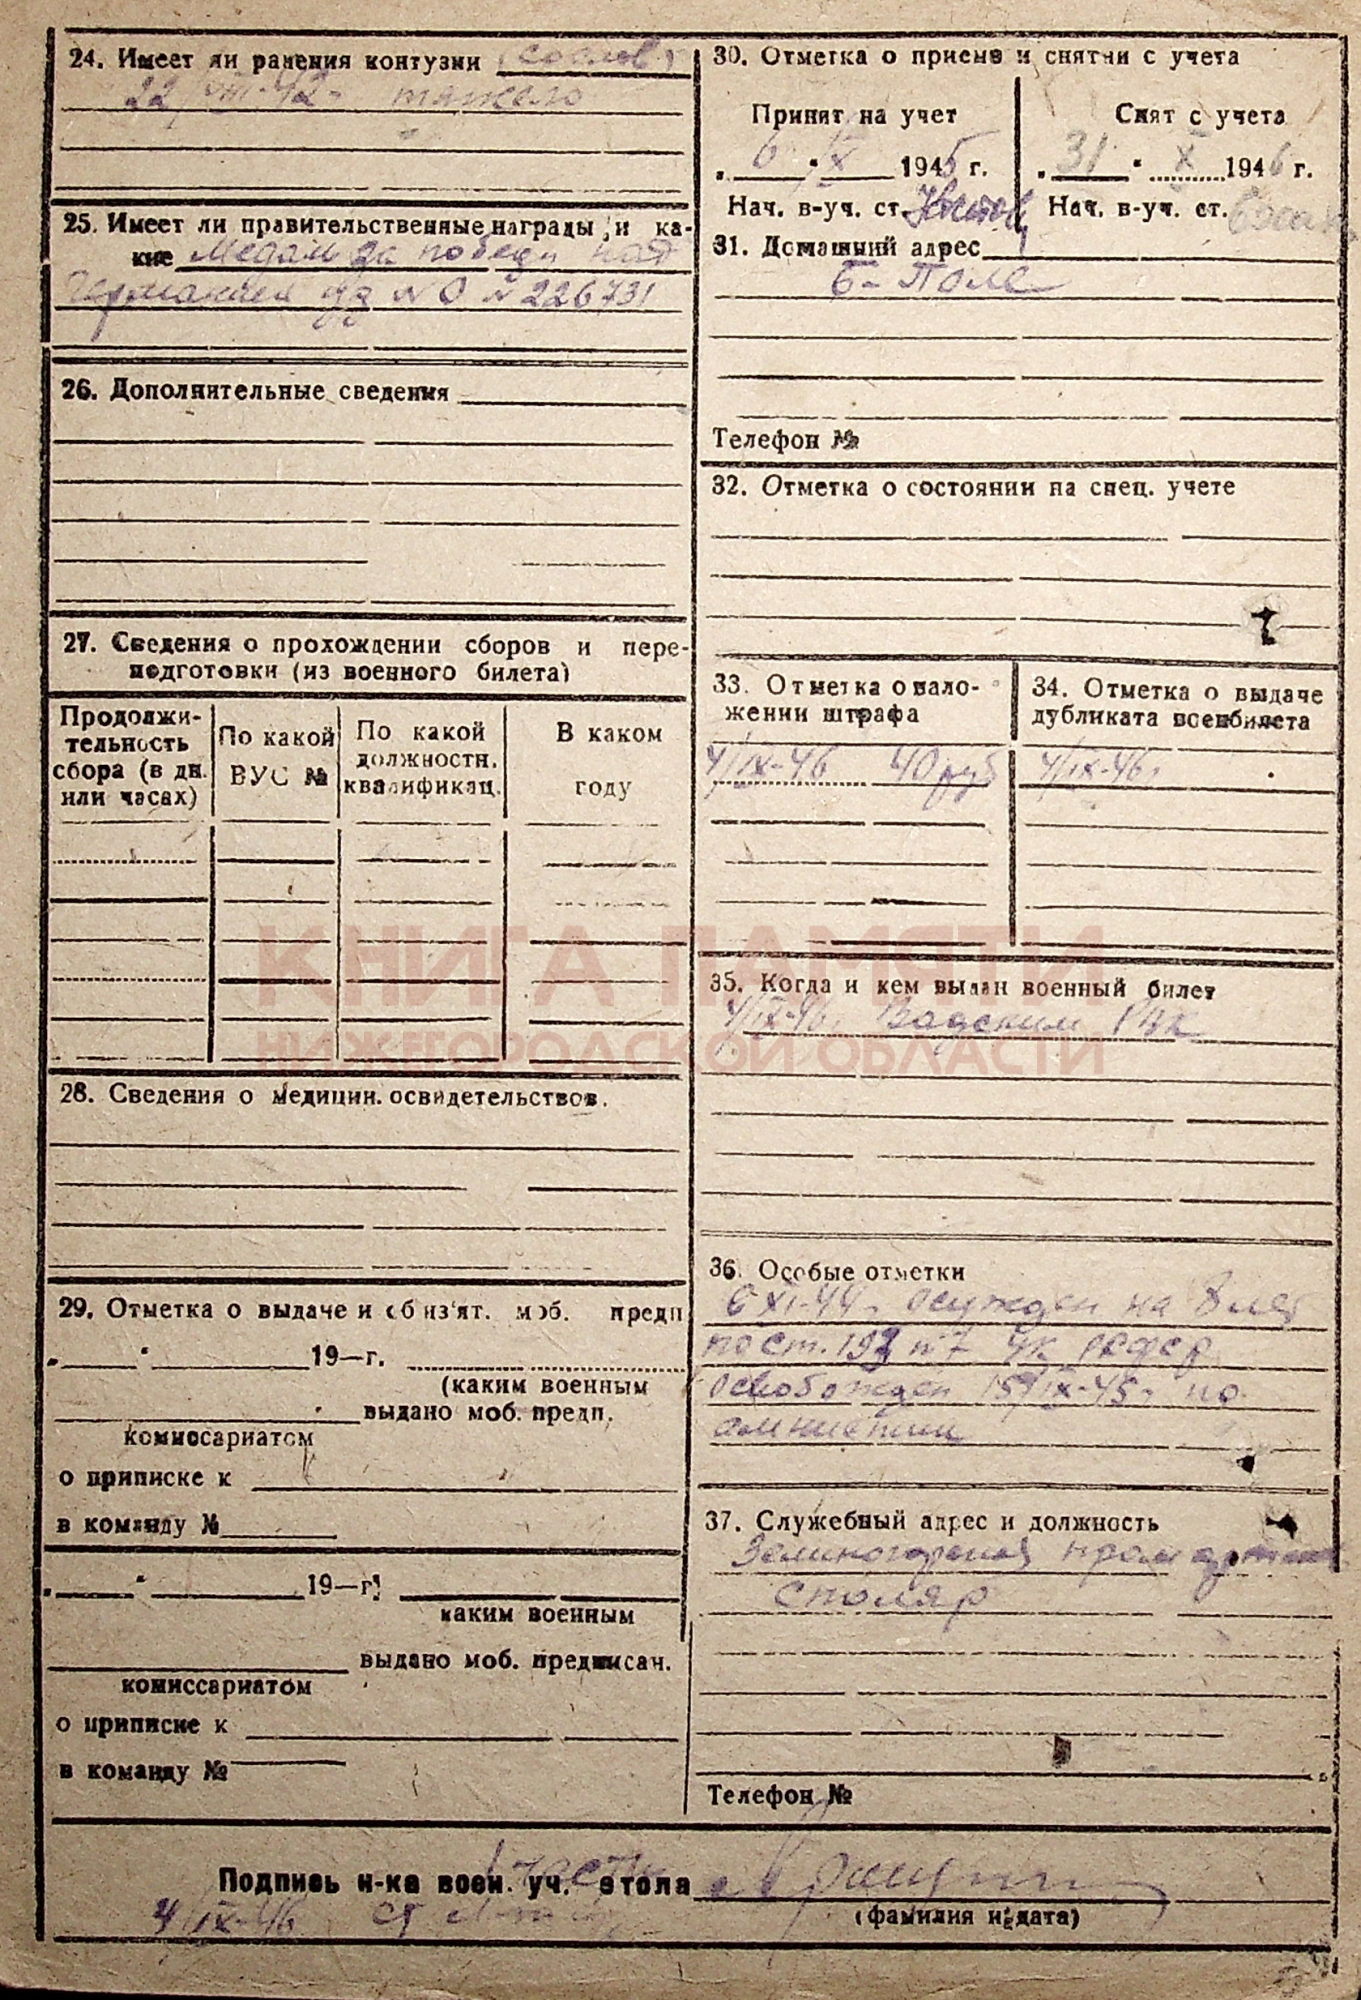 24. Имеет ли ранения контузии
22/VIII-42г тяжело
25. Имеет ли правительственные награды и ка-
кие Медаль за победу над
Германией уд № 0 № 226731
26. Дополнительные сведения
27. Сведения о прохождении сборов и пере-
подготовки (из военного билета)
Продолжи-
тельность
сбора (в дн.
или часах)
По какой
ВУС №
По какой
должностн.
квалификац.
В каком
году
28. Сведения о медицин. освидетельствов.
29. Отметка о выдаче и об из'ят. моб. предп
19—г.
(каким военным
выдано моб. предп.
комиссариатом
о приписке к
в команду №
19—г.
каким военным
выдано моб. предписан.
комиссариатом
о приписке к
в команду №
30. Отметка о приеме и снятии с учета
Принят на учет
„ 6 “ X 1945 г.
Нач. в-уч. ст.
Снят с учета
„ 31 “ X 1946 г.
Нач. в-уч. ст.
31. Домашний адрес
Б-Поле
Телефон №
32. Отметка о состоянии на спец. учете
33. Отметка о нало-
жении штрафа
4/IX-46 40 руб
34. Отметка о выдаче
дубликата военбилета
4/IX-46г
35. Когда и кем выдан военный билет
4/IX-46г Вадским РВК
36. Особые отметки
6 XI-44г осужден на 8 лет
по ст. 193 п 7 УК РСФСР
освобожден 15/IX-45г по
амнистии
37. Служебный адрес и должность
пром артель
столяр
Телефон №
Подпись н-ка воен. уч. стола
(фамилия и дата)
4/IX-46
КНИГА ПАМЯТИ
НИЖЕГОРОДСКОЙ ОБЛАСТИ